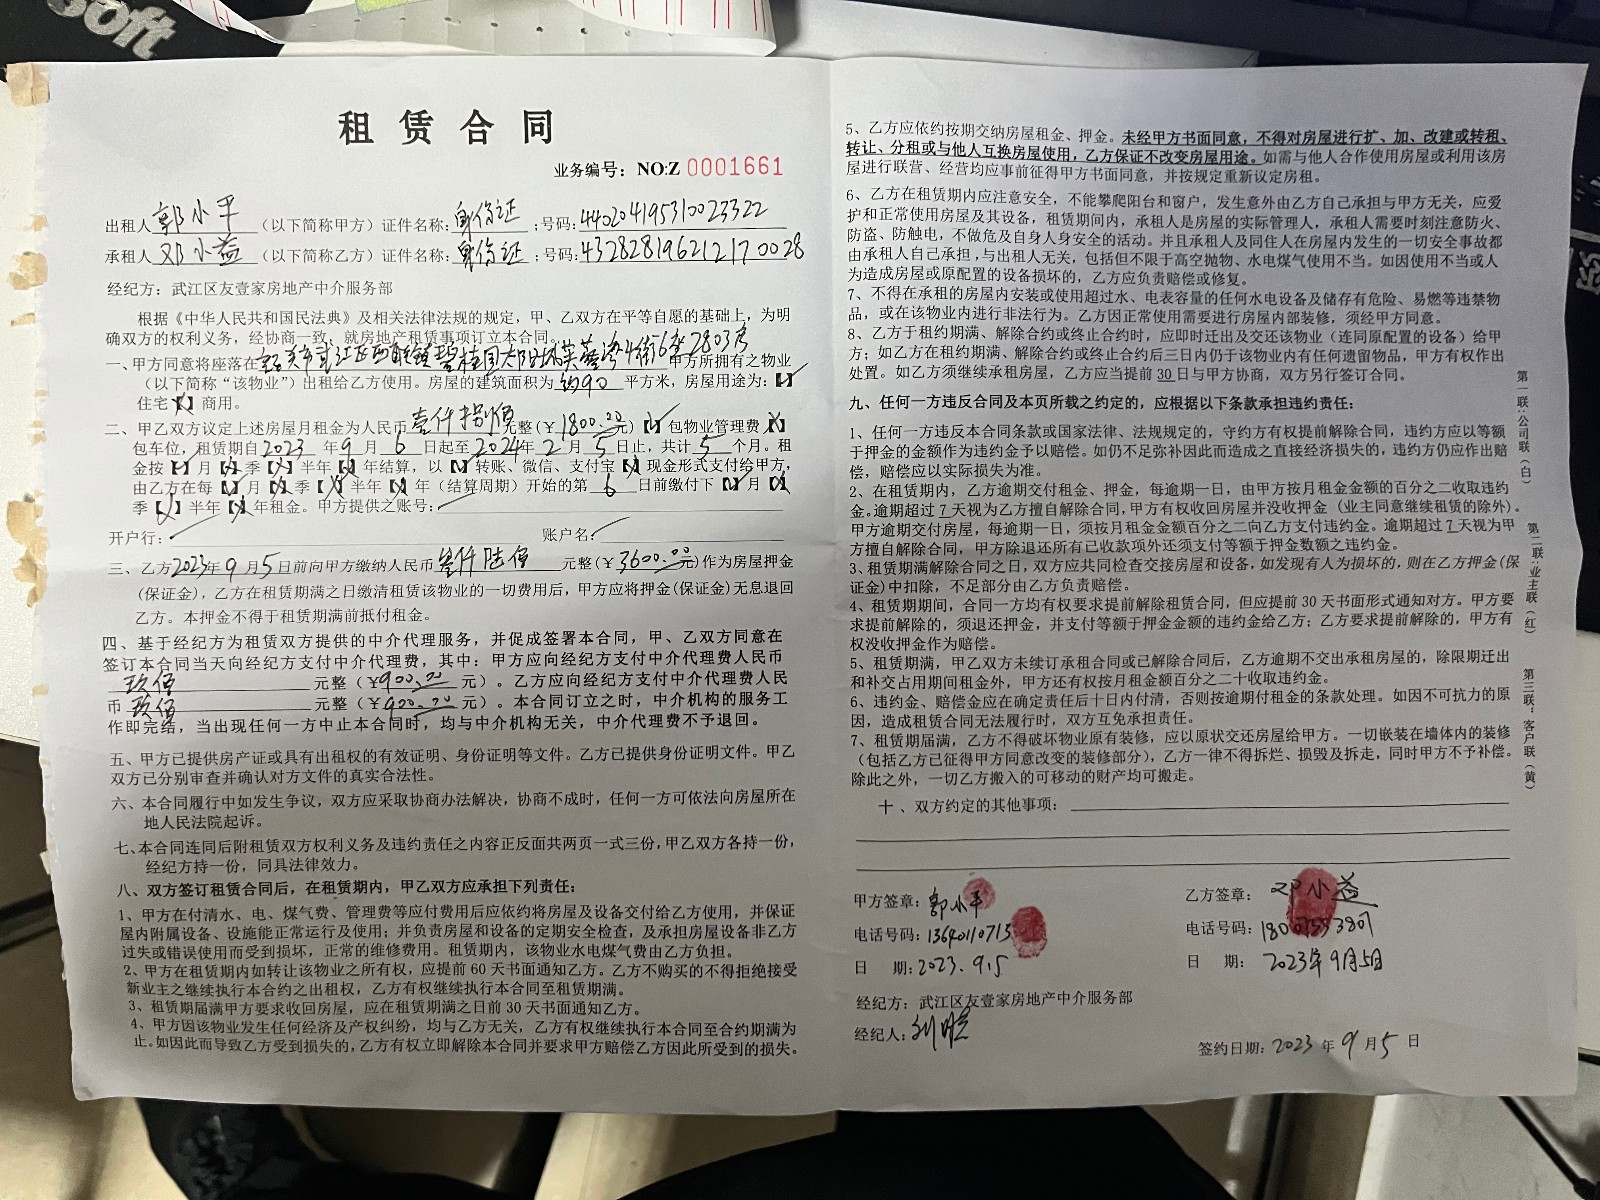 soft
租赁合同
业务编号：NO:Z 0001661
出租人 郭小平 （以下简称甲方）证件名称：身份证；号码：440204195310023322
承租人 邓小益 （以下简称乙方）证件名称：身份证；号码：432828196212170028
经纪方：武江区友壹家房地产中介服务部
根据《中华人民共和国民法典》及相关法律法规的规定，甲、乙双方在平等自愿的基础上，为明
确双方的权利义务，经协商一致，就房地产租赁事项订立本合同。
一、甲方同意将座落在 韶关市武江区西联镇碧桂园太阳城芙蓉湾4街6座2803房 甲方所拥有之物业
（以下简称“该物业”）出租给乙方使用。房屋的建筑面积为 约90 平方米，房屋用途为：【√】
住宅【×】商用。
二、甲乙双方议定上述房屋月租金为人民币 壹仟捌佰 元整（￥1800.00元）【√】包物业管理费【×】
包车位，租赁期自 2023 年 9 月 6 日起至 2024 年 2 月 5 日止，共计 5 个月。租
金按【√】月【×】季【×】半年【×】年结算，以【√】转账、微信、支付宝【×】现金形式支付给甲方，
由乙方在每【√】月【×】季【×】半年【×】年（结算周期）开始的第 6 日前缴付下【√】月【×】
季【×】半年【×】年租金。甲方提供之账号：
开户行： 账户名：
三、乙方2023年9月5日前向甲方缴纳人民币 叁仟陆佰 元整（￥3600.00元）作为房屋押金
(保证金)，乙方在租赁期满之日缴清租赁该物业的一切费用后，甲方应将押金(保证金)无息退回
乙方。本押金不得于租赁期满前抵付租金。
四、基于经纪方为租赁双方提供的中介代理服务，并促成签署本合同，甲、乙双方同意在
签订本合同当天向经纪方支付中介代理费，其中：甲方应向经纪方支付中介代理费人民币
玖佰 元整（￥900.00 元）。乙方应向经纪方支付中介代理费人民
币 玖佰 元整（￥900.00 元）。本合同订立之时，中介机构的服务工
作即完结，当出现任何一方中止本合同时，均与中介机构无关，中介代理费不予退回。
五、甲方已提供房产证或具有出租权的有效证明、身份证明等文件。乙方已提供身份证明文件。甲乙
双方已分别审查并确认对方文件的真实合法性。
六、本合同履行中如发生争议，双方应采取协商办法解决，协商不成时，任何一方可依法向房屋所在
地人民法院起诉。
七、本合同连同后附租赁双方权利义务及违约责任之内容正反面共两页一式三份，甲乙双方各持一份，
经纪方持一份，同具法律效力。
八、双方签订租赁合同后，在租赁期内，甲乙双方应承担下列责任：
1、甲方在付清水、电、煤气费、管理费等应付费用后应依约将房屋及设备交付给乙方使用，并保证
屋内附属设备、设施能正常运行及使用；并负责房屋和设备的定期安全检查，及承担房屋设备非乙方
过失或错误使用而受到损坏，正常的维修费用。租赁期内，该物业水电煤气费由乙方负担。
2、甲方在租赁期内如转让该物业之所有权，应提前60天书面通知乙方。乙方不购买的不得拒绝接受
新业主之继续执行本合约之出租权，乙方有权继续执行本合同至租赁期满。
3、租赁期届满甲方要求收回房屋，应在租赁期满之日前30天书面通知乙方。
4、甲方因该物业发生任何经济及产权纠纷，均与乙方无关，乙方有权继续执行本合同至合约期满为
止。如因此而导致乙方受到损失的，乙方有权立即解除本合同并要求甲方赔偿乙方因此所受到的损失。
5、乙方应依约按期交纳房屋租金、押金。未经甲方书面同意，不得对房屋进行扩、加、改建或转租、
转让、分租或与他人互换房屋使用，乙方保证不改变房屋用途。如需与他人合作使用房屋或利用该房
屋进行联营、经营均应事前征得甲方书面同意，并按规定重新议定房租。
6、乙方在租赁期内应注意安全，不能攀爬阳台和窗户，发生意外由乙方自己承担与甲方无关，应爱
护和正常使用房屋及其设备，租赁期间内，承租人是房屋的实际管理人，承租人需要时刻注意防火、
防盗、防触电，不做危及自身人身安全的活动。并且承租人及同住人在房屋内发生的一切安全事故都
由承租人自己承担，与出租人无关，包括但不限于高空抛物、水电煤气使用不当。如因使用不当或人
为造成房屋或原配置的设备损坏的，乙方应负责赔偿或修复。
7、不得在承租的房屋内安装或使用超过水、电表容量的任何水电设备及储存有危险、易燃等违禁物
品，或在该物业内进行非法行为。乙方因正常使用需要进行房屋内部装修，须经甲方同意。
8、乙方于租约期满、解除合约或终止合约时，应即时迁出及交还该物业（连同原配置的设备）给甲
方；如乙方在租约期满、解除合约或终止合约后三日内仍于该物业内有任何遗留物品，甲方有权作出
处置。如乙方须继续承租房屋，乙方应当提前30日与甲方协商，双方另行签订合同。
九、任何一方违反合同及本页所载之约定的，应根据以下条款承担违约责任：
1、任何一方违反本合同条款或国家法律、法规规定的，守约方有权提前解除合同，违约方应以等额
于押金的金额作为违约金予以赔偿。如仍不足弥补因此而造成之直接经济损失的，违约方仍应作出赔
偿，赔偿应以实际损失为准。
2、在租赁期内，乙方逾期交付租金、押金，每逾期一日，由甲方按月租金金额的百分之二收取违约
金。逾期超过7天视为乙方擅自解除合同，甲方有权收回房屋并没收押金（业主同意继续租赁的除外）。
甲方逾期交付房屋，每逾期一日，须按月租金金额百分之二向乙方支付违约金。逾期超过7天视为甲
方擅自解除合同，甲方除退还所有已收款项外还须支付等额于押金数额之违约金。
3、租赁期满解除合同之日，双方应共同检查交接房屋和设备，如发现有人为损坏的，则在乙方押金(保
证金)中扣除，不足部分由乙方负责赔偿。
4、租赁期期间，合同一方均有权要求提前解除租赁合同，但应提前30天书面形式通知对方。甲方要
求提前解除的，须退还押金，并支付等额于押金金额的违约金给乙方；乙方要求提前解除的，甲方有
权没收押金作为赔偿。
5、租赁期满，甲乙双方未续订承租合同或已解除合同后，乙方逾期不交出承租房屋的，除限期迁出
和补交占用期间租金外，甲方还有权按月租金金额百分之二十收取违约金。
6、违约金、赔偿金应在确定责任后十日内付清，否则按逾期付租金的条款处理。如因不可抗力的原
因，造成租赁合同无法履行时，双方互免承担责任。
7、租赁期届满，乙方不得破坏物业原有装修，应以原状交还房屋给甲方。一切嵌装在墙体内的装修
（包括乙方已征得甲方同意改变的装修部分），乙方一律不得拆烂、损毁及拆走，同时甲方不予补偿。
除此之外，一切乙方搬入的可移动的财产均可搬走。
十、双方约定的其他事项：
甲方签章：郭小平
电话号码：13640110713
日 期：2023.9.5
乙方签章：邓小益
日 期：2023年9月5日
经纪方：武江区友壹家房地产中介服务部
经纪人：
签约日期：2023 年 9 月 5 日
第一联：公司联（白）
第二联：业主联（红）
第三联：客户联（黄）